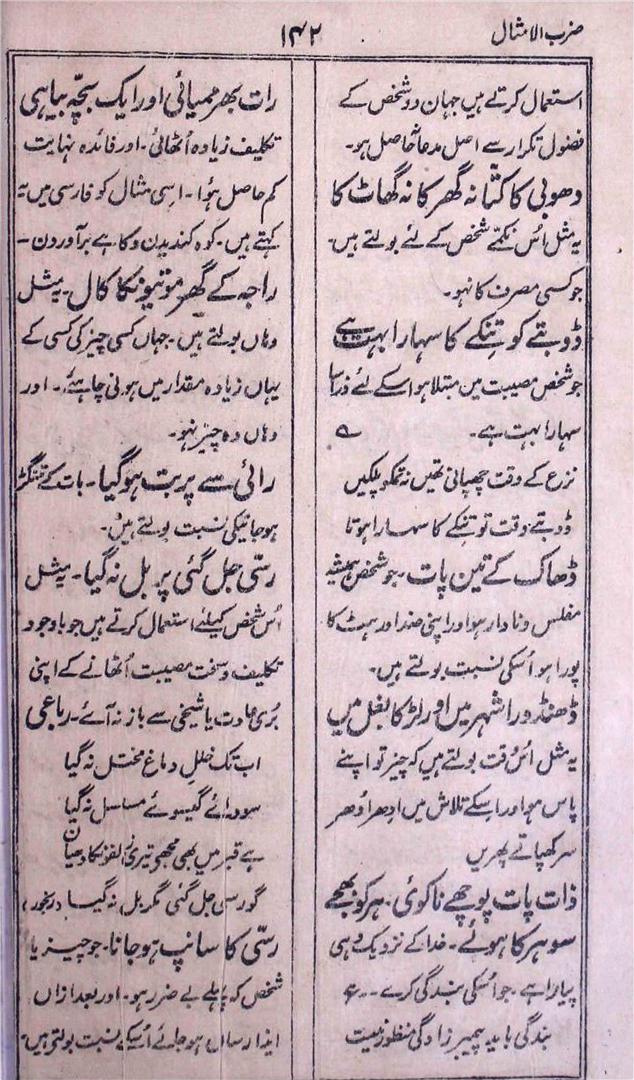 ضرب الامثال
۱۴۲
استعمال کرتے ہیں جہان دو شخص کے
فضول تکرار سے اصل مدعا حاصل ہو۔
دھوبی کا کتا نہ گھر کا نہ گھاٹ کا
یہ مثل اُس نکمّے شخص کے لئے بولتے ہیں۔
جو کسی مصرف کا نہو۔
ڈوبتے کو تِنکے کا سہارا بہت ہے
جو شخص مصیبت میں مبتلا ہو اسکے لئے ذرا سا
سہارا بہت ہے۔
نزع کے وقت چھپاتی تھیں نہ تمکو پلکیں
ڈوبتے وقت تو تنکے کا سہارا ہوتا
ڈھاک کے تین پات۔ جو شخص ہمیشہ
مفلس و نادار ہو اور اپنی ضد اور ہٹ کا
پورا ہو اُسکی نسبت بولتے ہیں۔
ڈھنڈورا شہر میں اور لڑکا بغل میں
یہ مثل اُس وقت بولتے ہیں کہ چیز تو اپنے
پاس ہو اور اسکے تلاش میں ادھر اُدھر
سر کھپاتے پھریں
ذات پات پوچھے نا کوئی۔ ہر کو بھجے
سو ہر کا ہوئے۔ خدا کے نزدیک وہی
پیارا ہے۔ جو اُسکی بندگی کرے۔
بندگی باید پیمبر زادگی منظور نیست
رات بھر ممیائی اور ایک بچّہ بیاہی
تکلیف زیادہ اُٹھائی۔ اور فائدہ نہایت
کم حاصل ہؤا۔ اسی مثال کو فارسی میں یہ
کہتے ہیں۔ کوہ کندیدن و کاہے برآوردن۔
راجہ کے گھر موتیونکا کال۔ یہ مثل
وہاں بولتے ہیں۔ جہاں کسی چیز کی کسی کے
یہاں زیادہ مقدار میں ہونی چاہئے۔ اور
وہاں وہ چیز نہو۔
رائی سے پربت ہوگیا۔ بات کے بتنگڑ
ہو جانیکی نسبت بولتے ہیں۔
رسّی جل گئی پر بل نہ گیا۔ یہ مثل
اُس شخص کیلئے استعمال کرتے ہیں جو باوجود
تکلیف و سخت مصیبت اُٹھانے کے اپنی
بُری عادت یا شیخی سے باز نہ آئے۔ رباعی
اب تک خلل دماغ مختل نہ گیا
سودائے گیسوئے مسلسل نہ گیا
ہے قبر میں بھی مجھے تیری زلفونکا دہیان
گو رسی جل گئی مگر بل نہ گیا
رسّی کا سانپ ہو جانا۔ جو چیز یا
شخص کہ پہلے بے ضرر ہو۔ اور بعد ازاں
ایذا رساں ہو جائے اُسکی نسبت بولتے ہیں۔